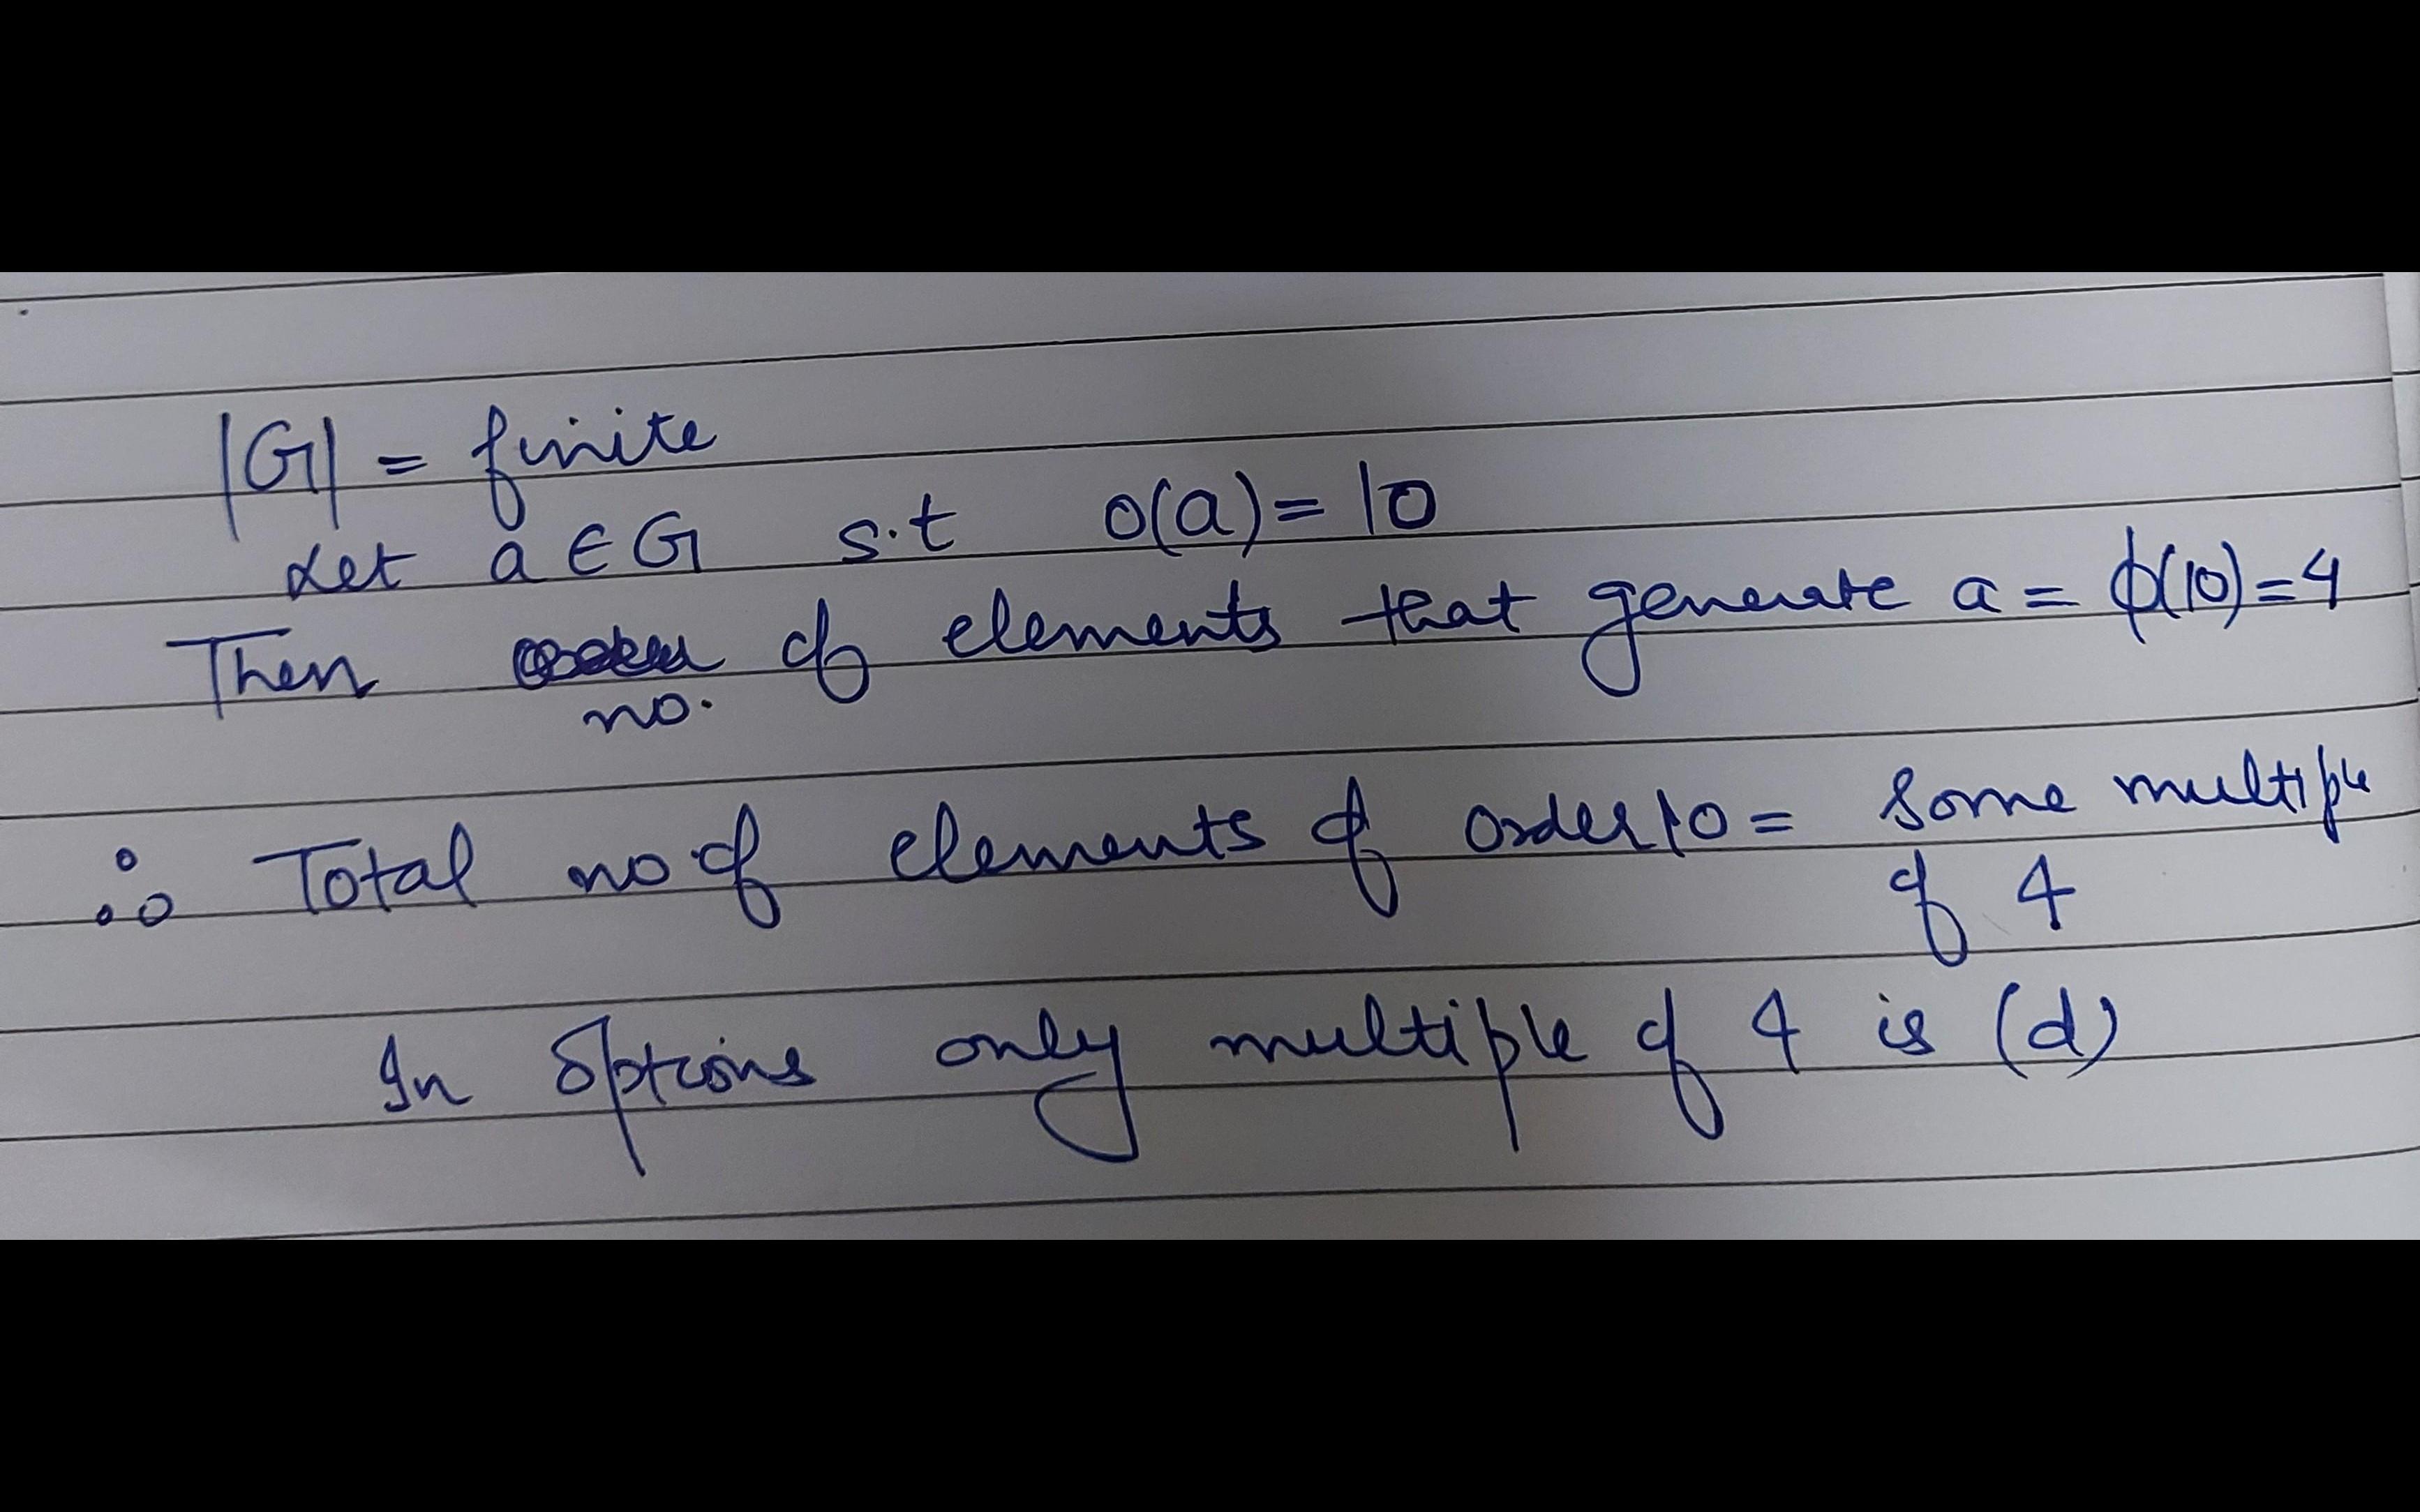 |G| = finite
Let a ∈ G s.t o(a) = 10
Then no. of elements that generate a = ϕ(10) = 4
∴ Total no of elements of order 10 = some multiple
of 4
In options only multiple of 4 is (d)